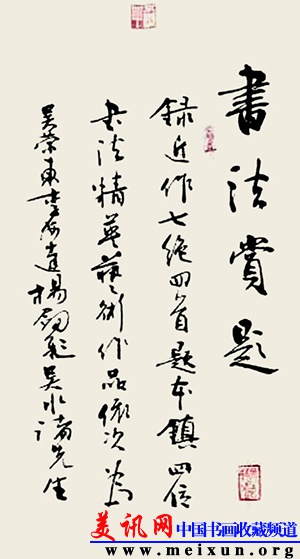 書法賞題
録近作七绝四首題本鎮四位
书法精英藝術作品依次為
吴榮東李道楊劍彪吴水清先生
美讯网 中国书画收藏频道
www.meixun.org